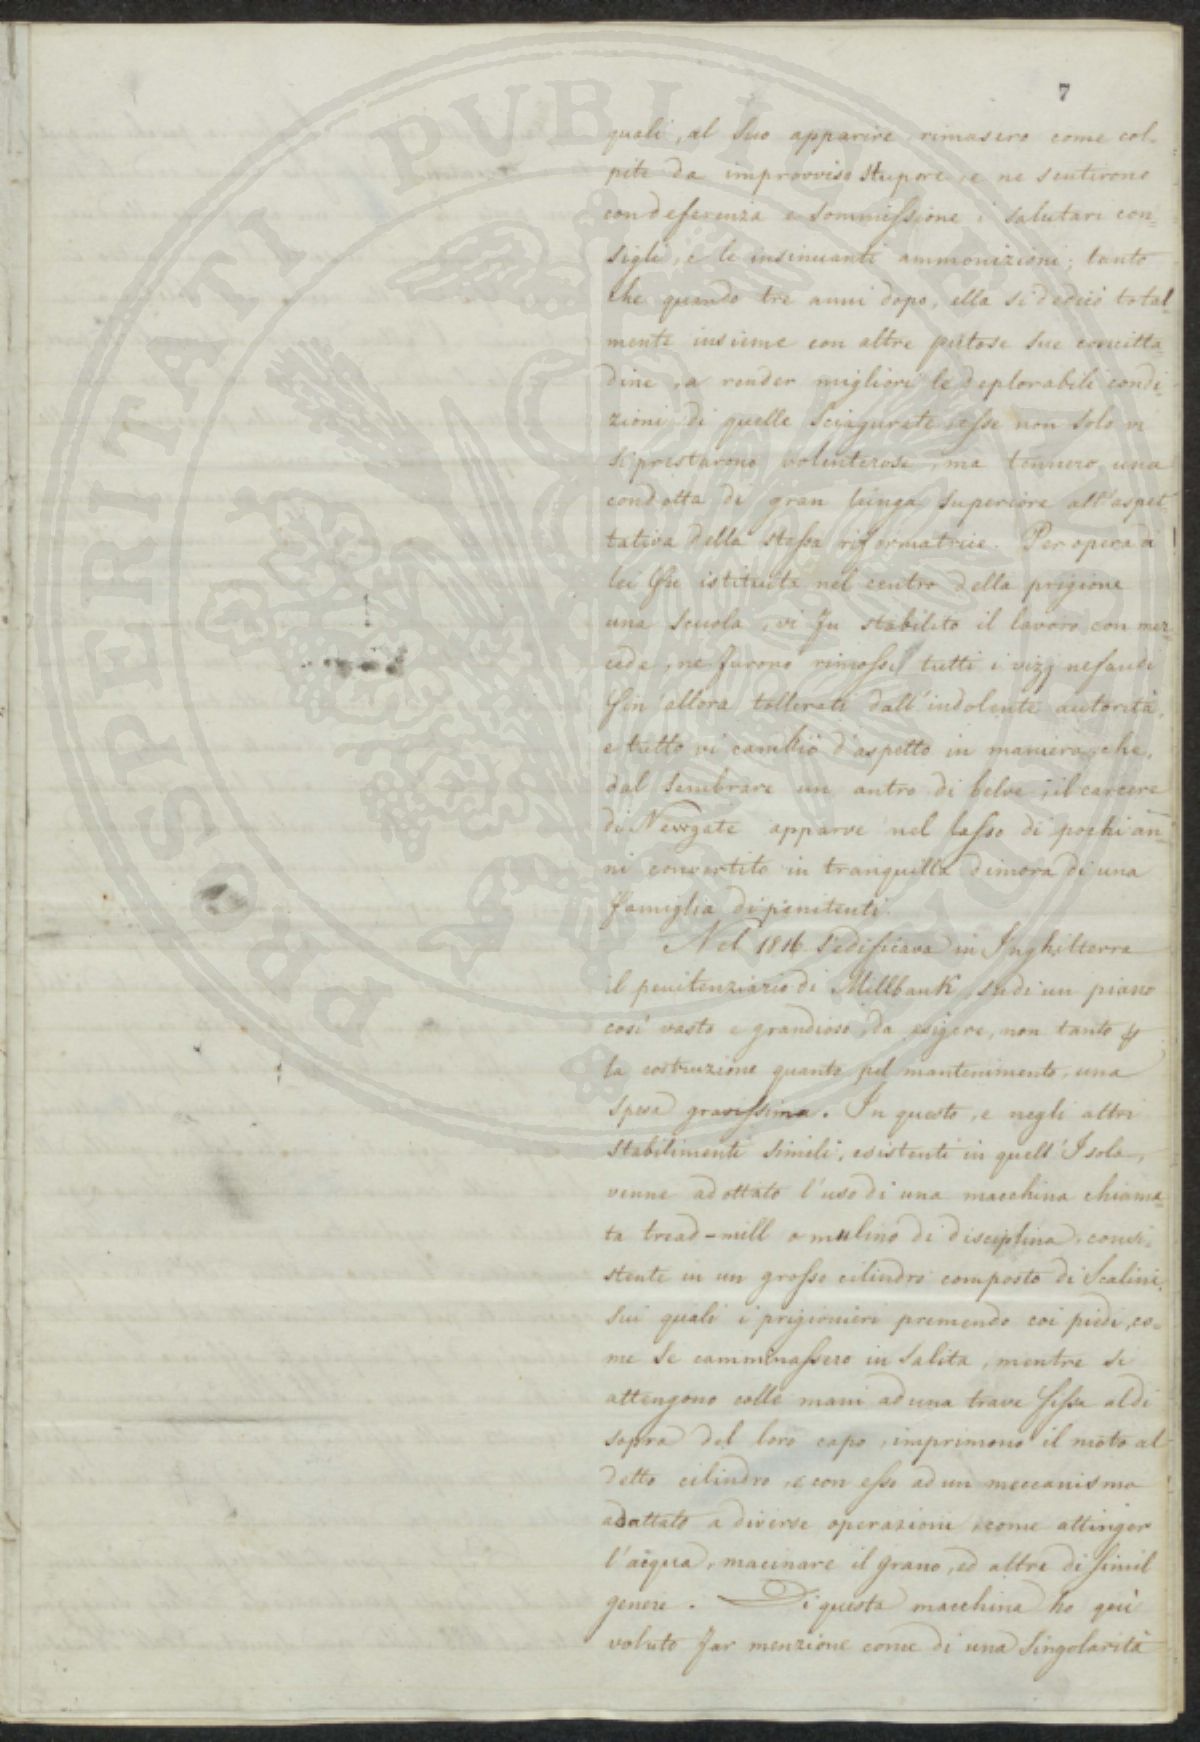 7
quali, al suo apparire, rimasero come col-
pite da improvviso stupore, e ne sentirono
con deferenza e sommissione i salutari con=
sigli, e le insinuanti ammonizioni; tanto
che quando tre anni dopo, ella si dedicò total-
mente insieme con altre pietose sue concitta-
dine, a render migliori le deplorabili condi-
zioni di quelle sciagurate, esse non solo vi
si prestarono volenterose, ma tennero una
condotta di gran lunga superiore all'aspet-
tativa della stessa riformatrice. Per opera di
lei fu istituita nel centro della prigione
una scuola, vi fu stabilito il lavoro con mer=
cede, ne furono rimossi tutti i vizj nefandi
fin allora tollerati dall'indolente autorità,
e tutto vi cambiò d'aspetto in maniera, che,
dal sembrare un antro di belve, il carcere
di Newgate apparve nel lasso di pochi an-
ni convertito in tranquilla dimora di una
famiglia di penitenti.
Nel 1816 s'edificava in Inghilterra
il penitenziario di Millbank, su di un piano
così vasto e grandioso, da esigere, non tanto p
la costruzione quanto pel mantenimento, una
spesa gravissima. In questo, e negli altri
stabilimenti simili, esistenti in quell'Isola,
venne adottato l'uso di una macchina chiama-
ta tread-mill o mulino di disciplina, consi-
stente in un grosso cilindro composto di Scalini,
sui quali i prigionieri premendo coi piedi, co-
me se camminassero in salita, mentre si
attengono colle mani ad una trave fissa al di
sopra del loro capo, imprimono il moto al
detto cilindro, e con esso ad un meccanismo
adattato a diverse operazioni, come attinger
l'acqua, macinare il grano, ed altre di simil
genere. Di questa macchina ho quì
voluto far menzione come di una singolarità
PROSPERITATI PUBLICAE